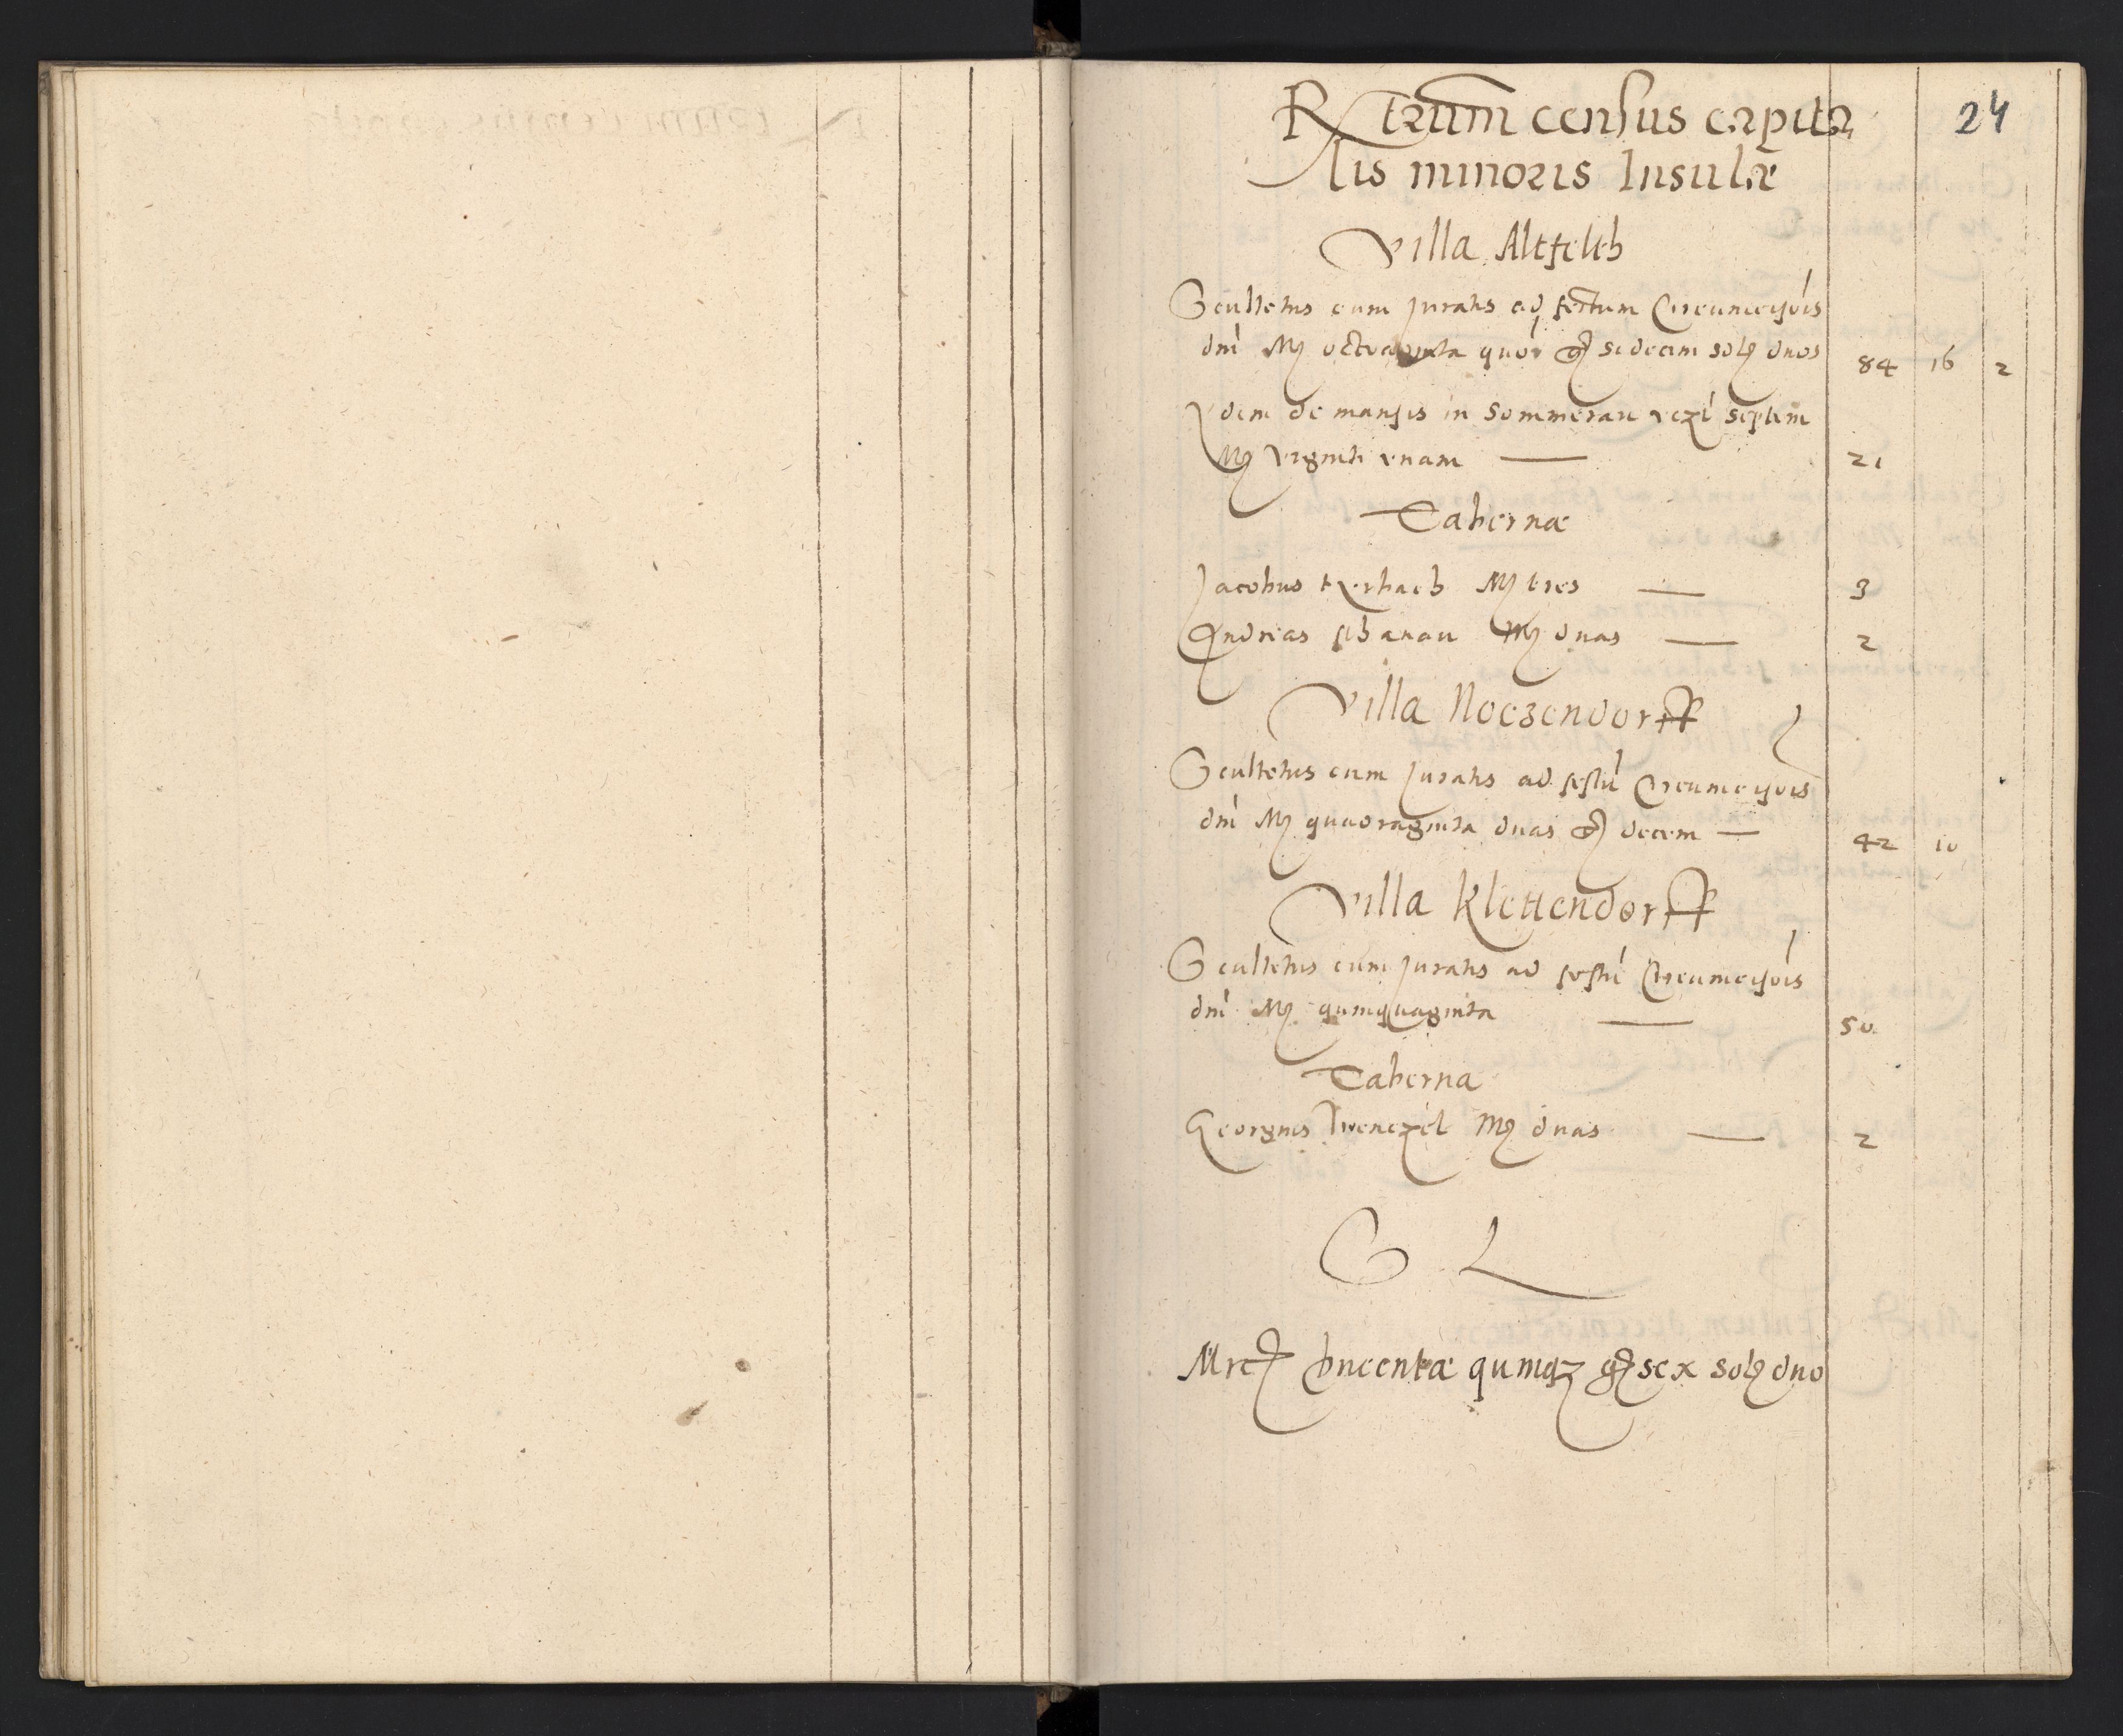 24
Rtrum census capita
lis minoris Insulæ
Villa Altfelth
Scultetus cum Juratis ad festum Circumcisiois
dni Mr octuaginta quor gr sedecim sol duos 84 16 2
Idem de mansis in Sommerau septem
Mr viginti unam — 21
Tabernæ
Jacobus Mr tres — 3
Andreas Mr duas — 2
Villa Noczendorff
Scultetus cum Juratis ad festu Circumcisiois
dni Mr quadraginta duas gr decem — 42 10
Villa Klettendorff
Scultetus cum Juratis ad festu Circumcisiois
dni Mr quinquaginta — 50
Taberna
Georgius Wenczel Mr duas — 2
S L
Mrc ducentæ quinqz gr sex sol duo